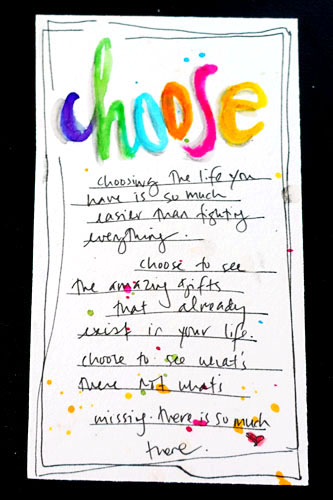 choose
choosing the life you
have is so much
easier than fighting
everything.
choose to see
the amazing gifts
that already
exist in your life.
choose to see what's
there not what's
missing. there is so much
there.